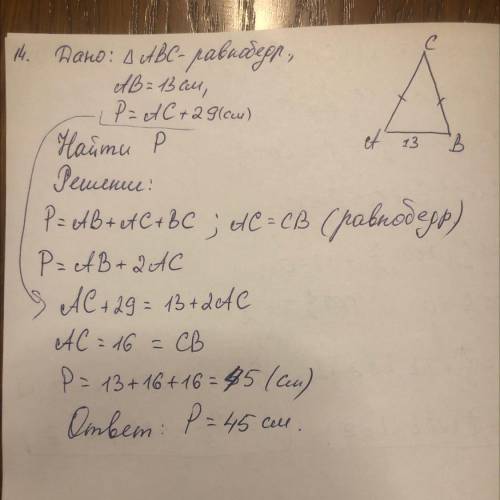 14. Дано: △ABC - равнобедр.,
AB = 13 см,
P = AC + 29 (см)
Найти P
Решение:
P = AB + AC + BC ; AC = CB (равнобедр)
P = AB + 2AC
AC + 29 = 13 + 2AC
AC = 16 = CB
P = 13 + 16 + 16 = 45 (см)
Ответ: P = 45 см.
C
A 13 B